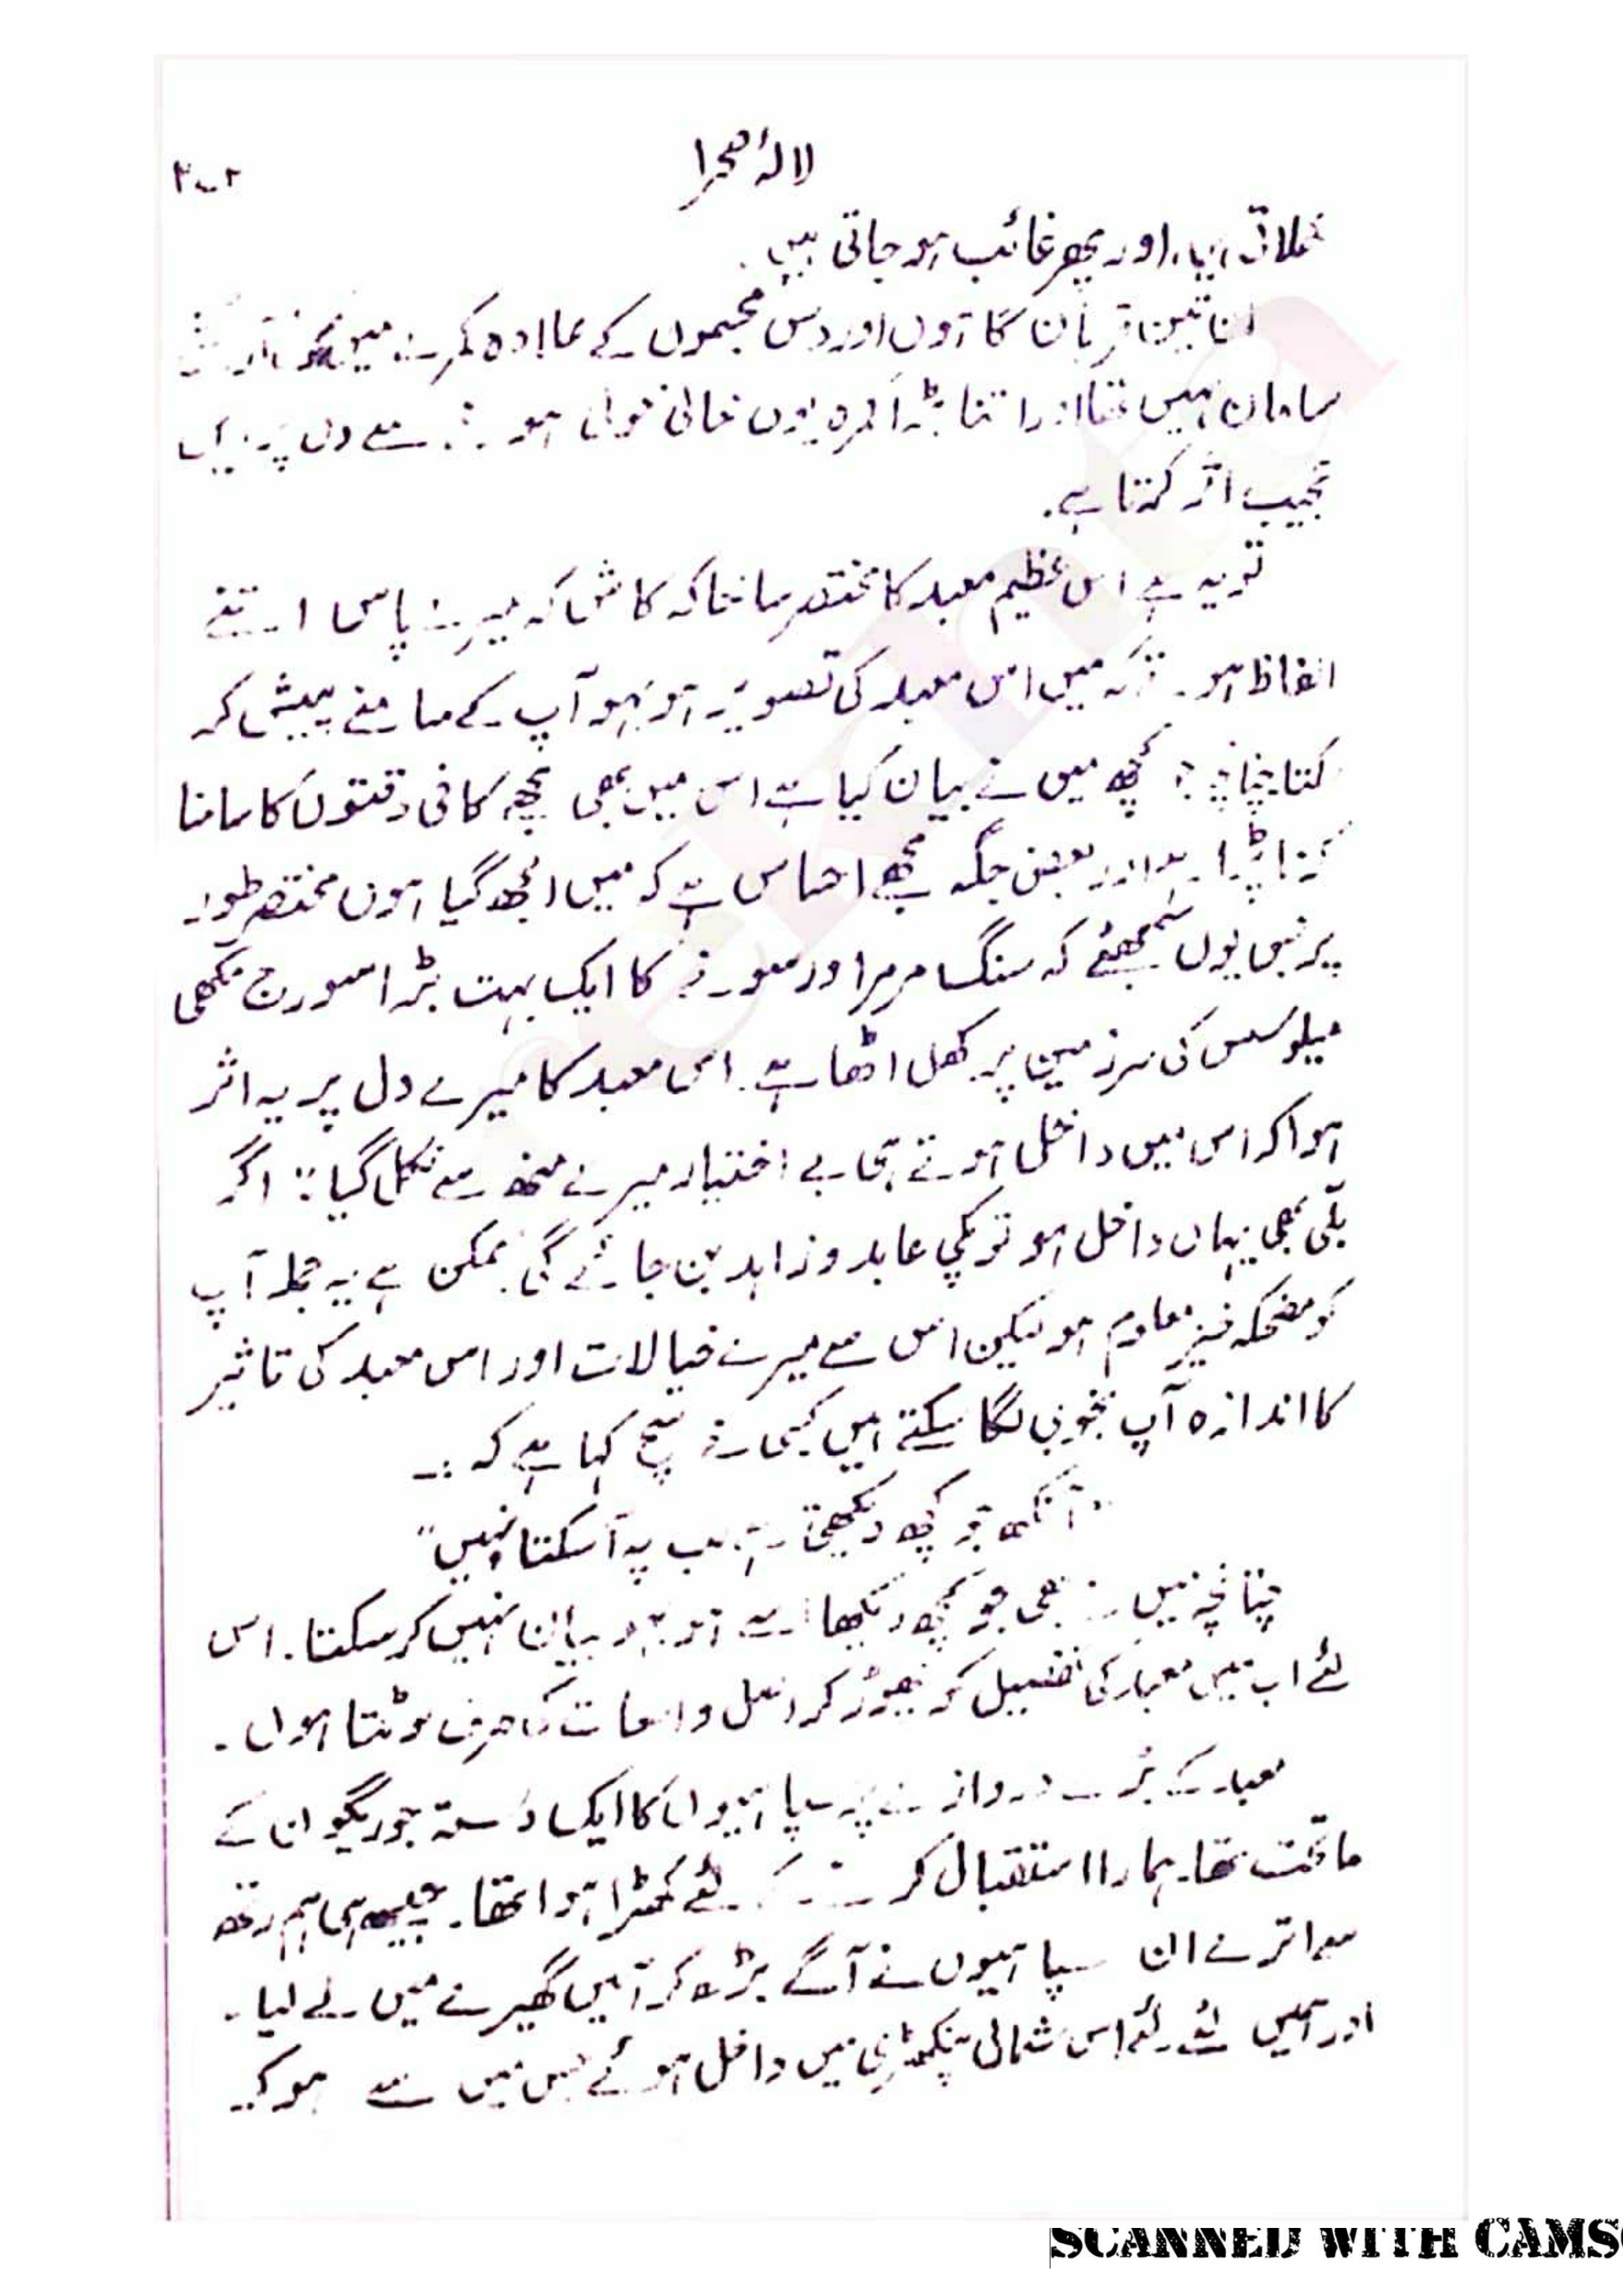 لالۂ صحرا
۲۰۳
اور پھر غائب ہو جاتی ہیں.
ان تین قربان گاہوں اور دس مجسموں کے علاوہ کمرے میں کوئی
سامان نہیں تھا اور اتنا بڑا کمرہ یوں خالی خولی ہو سے دل پر
عجیب اثر کرتا ہے.
تو یہ ہے اس عظیم معبد کا مختصر سا خاکہ کاش کہ میرے پاس اتنے
الفاظ ہوتے کہ میں اس معبد کی تصویر ہو بہو آپ کے سامنے پیش کر
سکتا چنانچہ جو کچھ میں نے بیان کیا ہے اس میں بھی مجھے کافی دقتوں کا سامنا
کرنا پڑا ہے اور بعض جگہ مجھے احساس ہے کہ میں الجھ گیا ہوں مختصر طور
پر بس یوں سمجھئے کہ سنگ مرمر اور سونے کا ایک بہت بڑا سورج مکھی
میلوسس کی سرزمین پر کھل اٹھا ہے. اس معبد کا میرے دل پر یہ اثر
ہوا کہ اس میں داخل ہوتے ہی بے اختیار میرے منھ سے نکل گیا: اگر
بلی بھی یہاں داخل ہو تو پکی عابد و زاہد بن جائے گی. ممکن ہے یہ جملہ آپ
کو مضحکہ خیز معلوم ہو لیکن اس سے میرے خیالات اور اس معبد کی تاثیر
کا اندازہ آپ بخوبی لگا سکتے ہیں کسی نے سچ کہا ہے کہ :۔
"آنکھ جو کچھ دیکھتی ہے لب پہ آ سکتا نہیں"
چنانچہ میں نے بھی جو کچھ دیکھا اسے ہو بہو بیان نہیں کر سکتا. اس
لئے اب میں معبد کی تفصیل کو چھوڑ کر اصل واقعات کی طرف لوٹتا ہوں۔
معبد کے بڑے دروازے پر سپاہیوں کا ایک دستہ جو ریگو ان کے
ماتحت تھا. ہمارا استقبال کرنے کے لئے کھڑا ہوا تھا۔ جیسے ہی ہم رتھ
سے اترے ان سپاہیوں نے آگے بڑھ کر ہمیں گھیرے میں لے لیا۔
اور ہمیں لئے ہوئے اس شمالی پنکھڑی میں داخل ہوئے جس میں سے ہو کر
SCANNED WITH CAMS